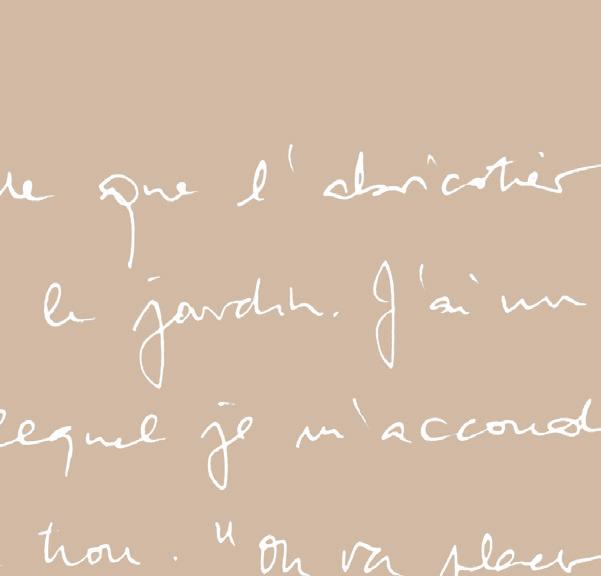 que l'abricotier
le jardin. J'ai un
lequel je m'accoud
trou. "on va placer